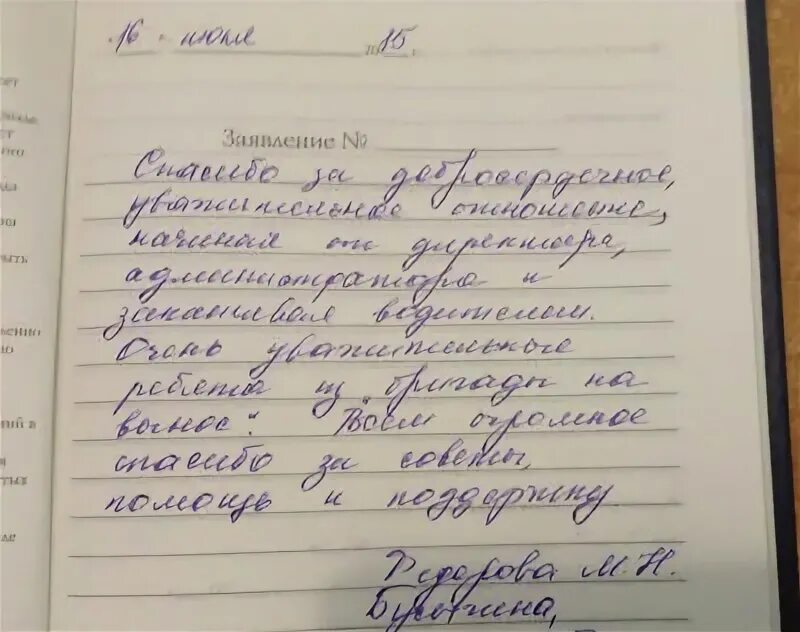 16 июля 15
Заявление №
Спасибо за добросердечное,
уважительное отношение,
начиная от директора,
администратора и
заканчивая водителем.
Очень уважительные
ребята из "бригады на
вынос". Всем огромное
спасибо за советы,
помощь и поддержку
Федорова М.Н.